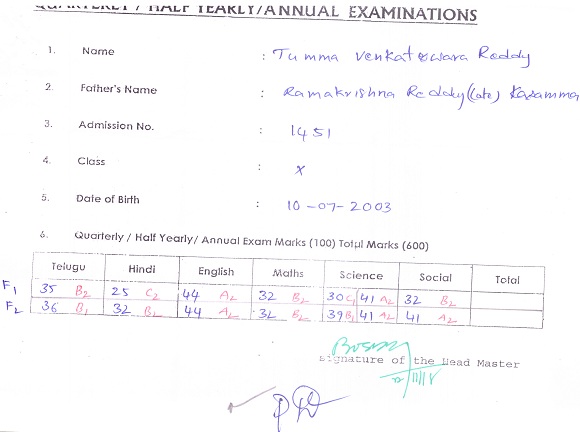 QUARTERLY / HALF YEARLY/ANNUAL EXAMINATIONS
1. Name : Tumma Venkateswara Reddy
2. Father's Name : Ramakrishna Reddy (Late) Kasamma
3. Admission No. : 1451
4. Class : X
5. Date of Birth : 10-07-2003
6. Quarterly / Half Yearly/ Annual Exam Marks (100) Total Marks (600)
Telugu Hindi English Maths Science Social Total
F1 35 B2 25 C2 44 A2 32 B2 30 C1 41 A2 32 B2
F2 36 B1 32 B2 44 A2 32 B2 39 B1 41 A2 41 A2
signature of the Head Master